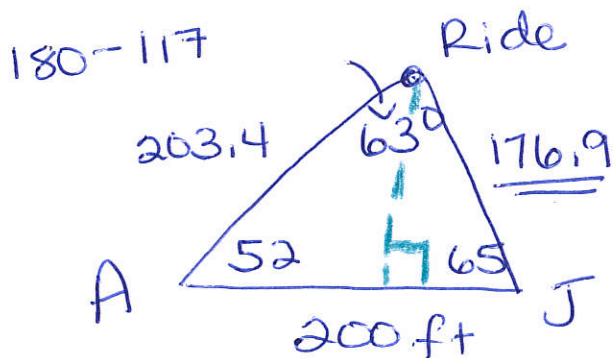 180-117
Ride
203.4
63°
176.9
A
52
h
65
J
200 ft